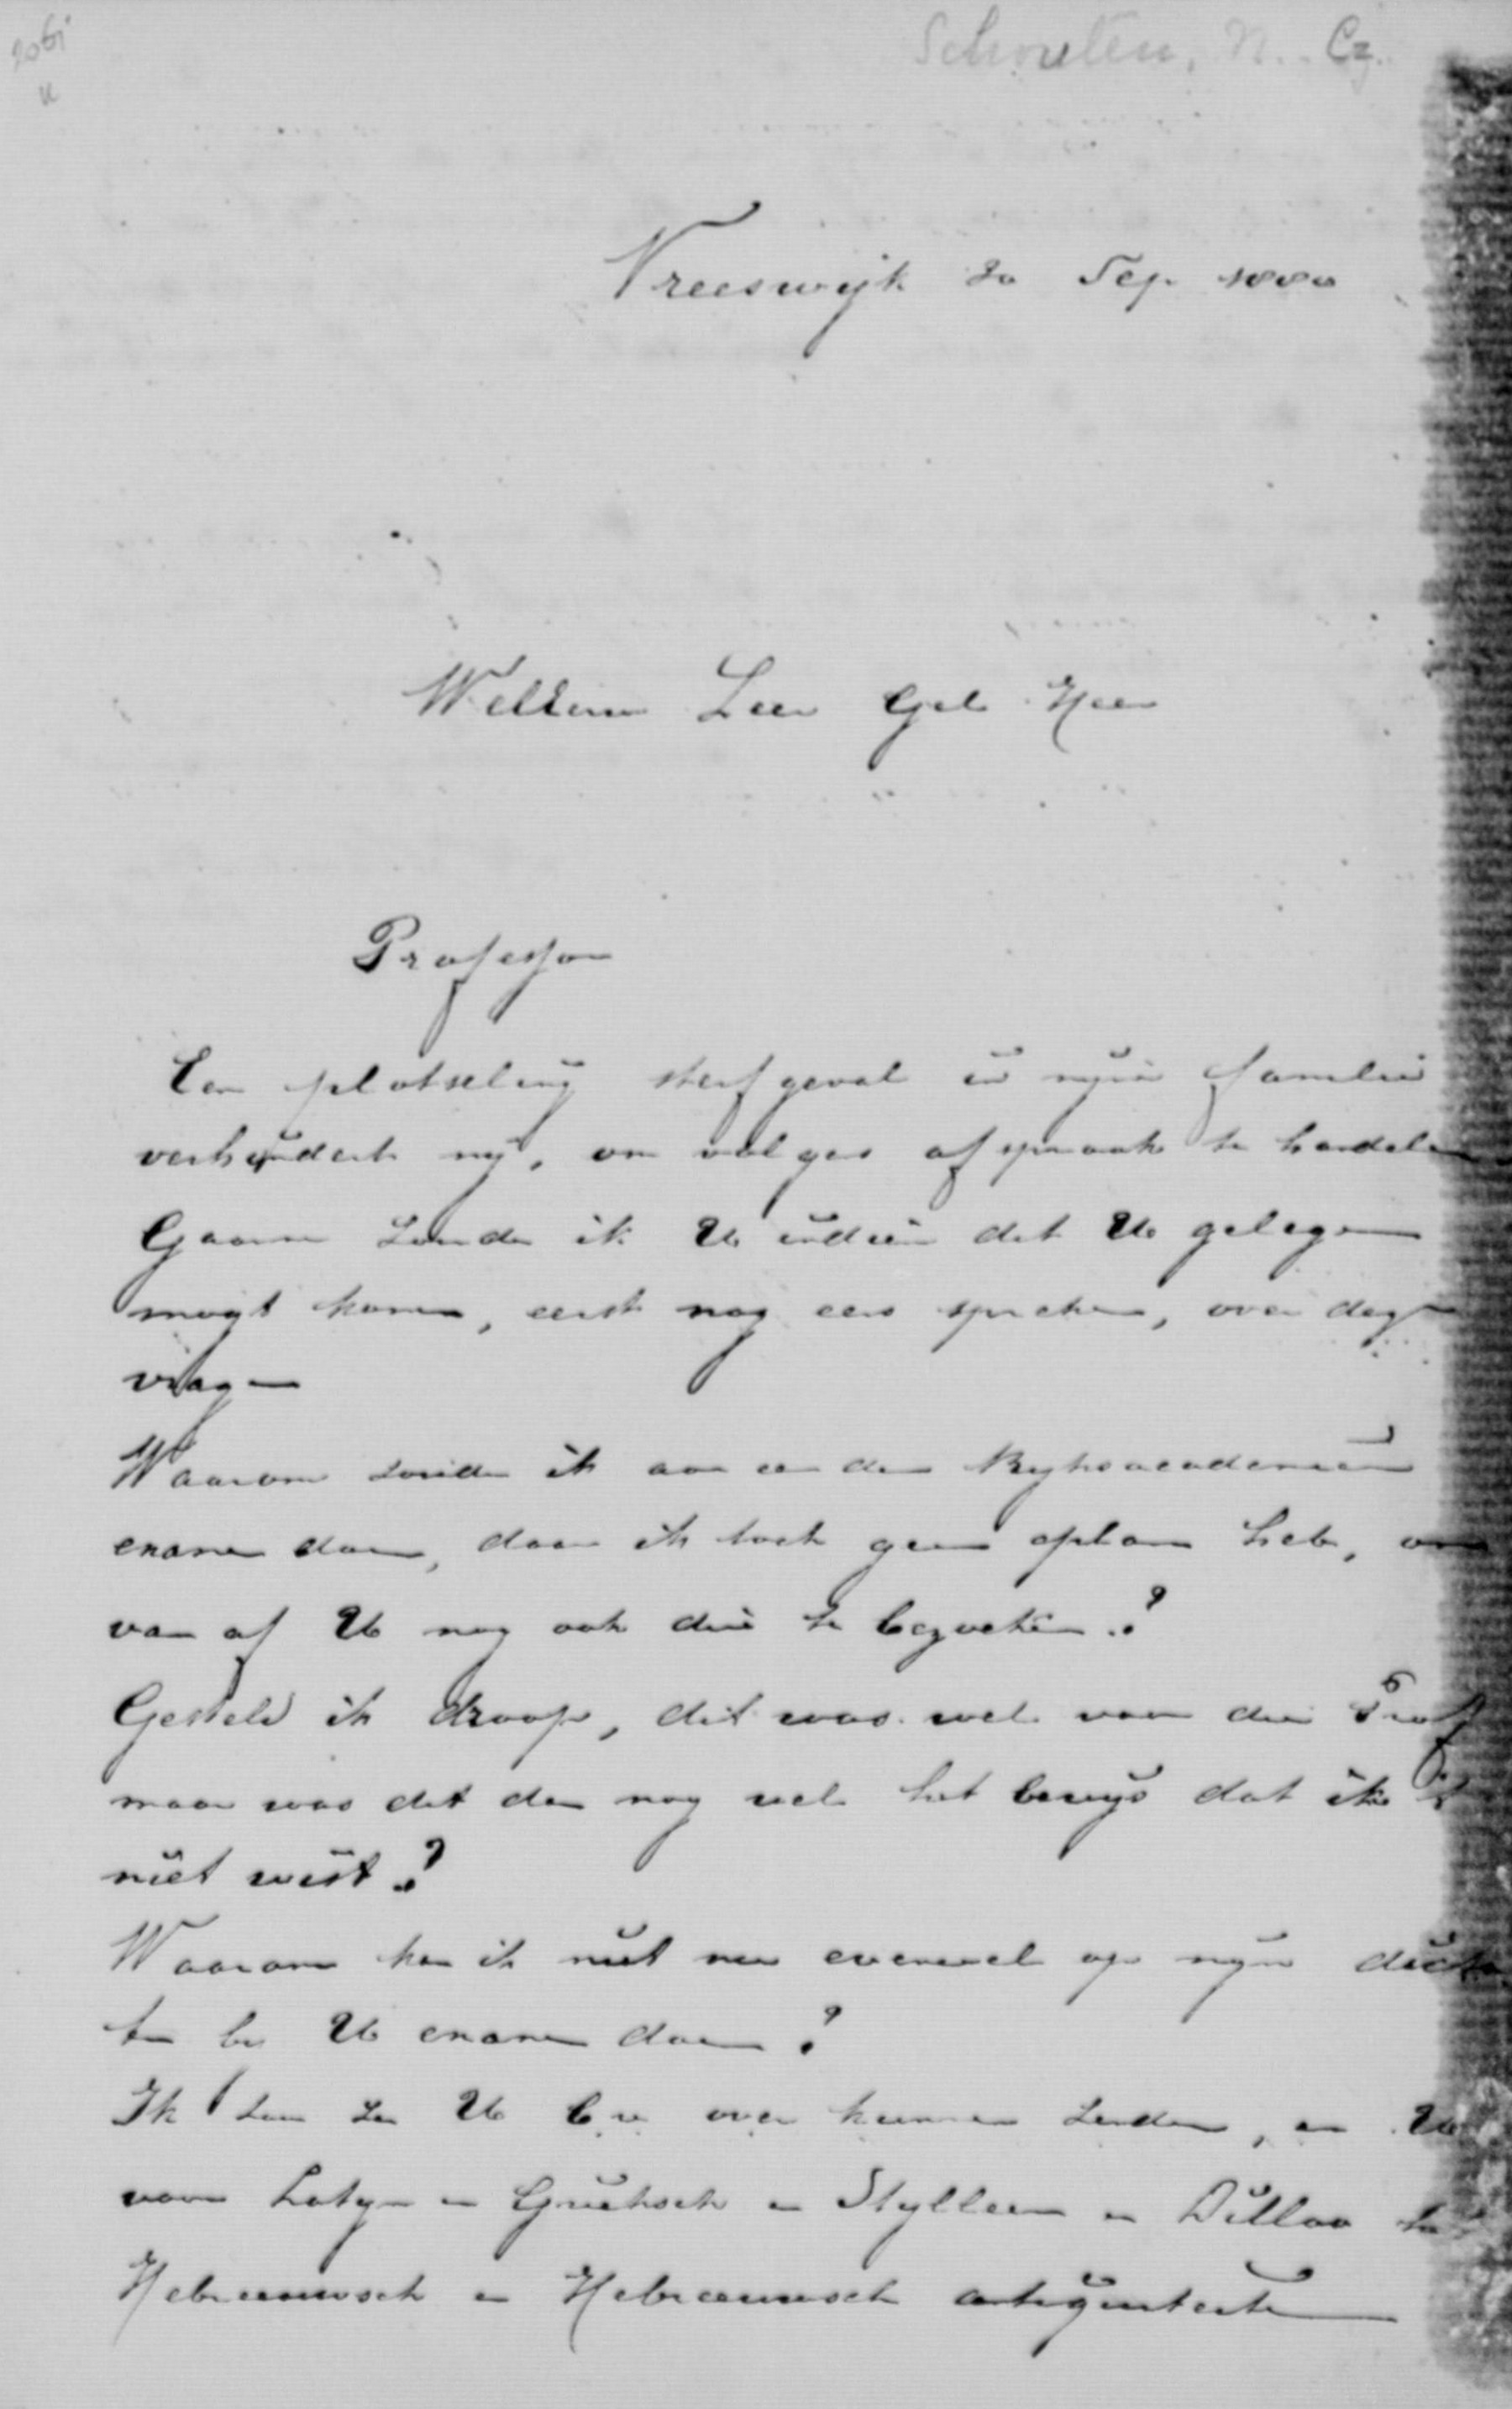 Schouten, N. Cz.
Vreeswijk 20 Sep 1880
WelEerw Zeer Gel Heer
Professor
Een plotseling sterfgeval in mijn familie
verhindert mij, om volgens afspraak te handelen
Gaarne zoude ik U indien dit U gelegen
mogt komen, eerst nog eens spreken, over deze
vragen
Waarom zoude ik aan een der Rijksacademien
examen doen, daar ik toch geen plan heb, om
van af U nog ook die te bezoeken?
Gesteld ik droop, dit was wel voor die Prof
maar was dit dan nog wel het bewijs dat ik
niet wist?
Waarom kan ik niet nu evenwel op mijn dicta
ten bij U examen doen?
Ik zou ze U over kunnen zenden, en U
voor Latyn en Grieksch en Dilloo
Hebreeuwsch en Hebreeuwsch antiquiteiten